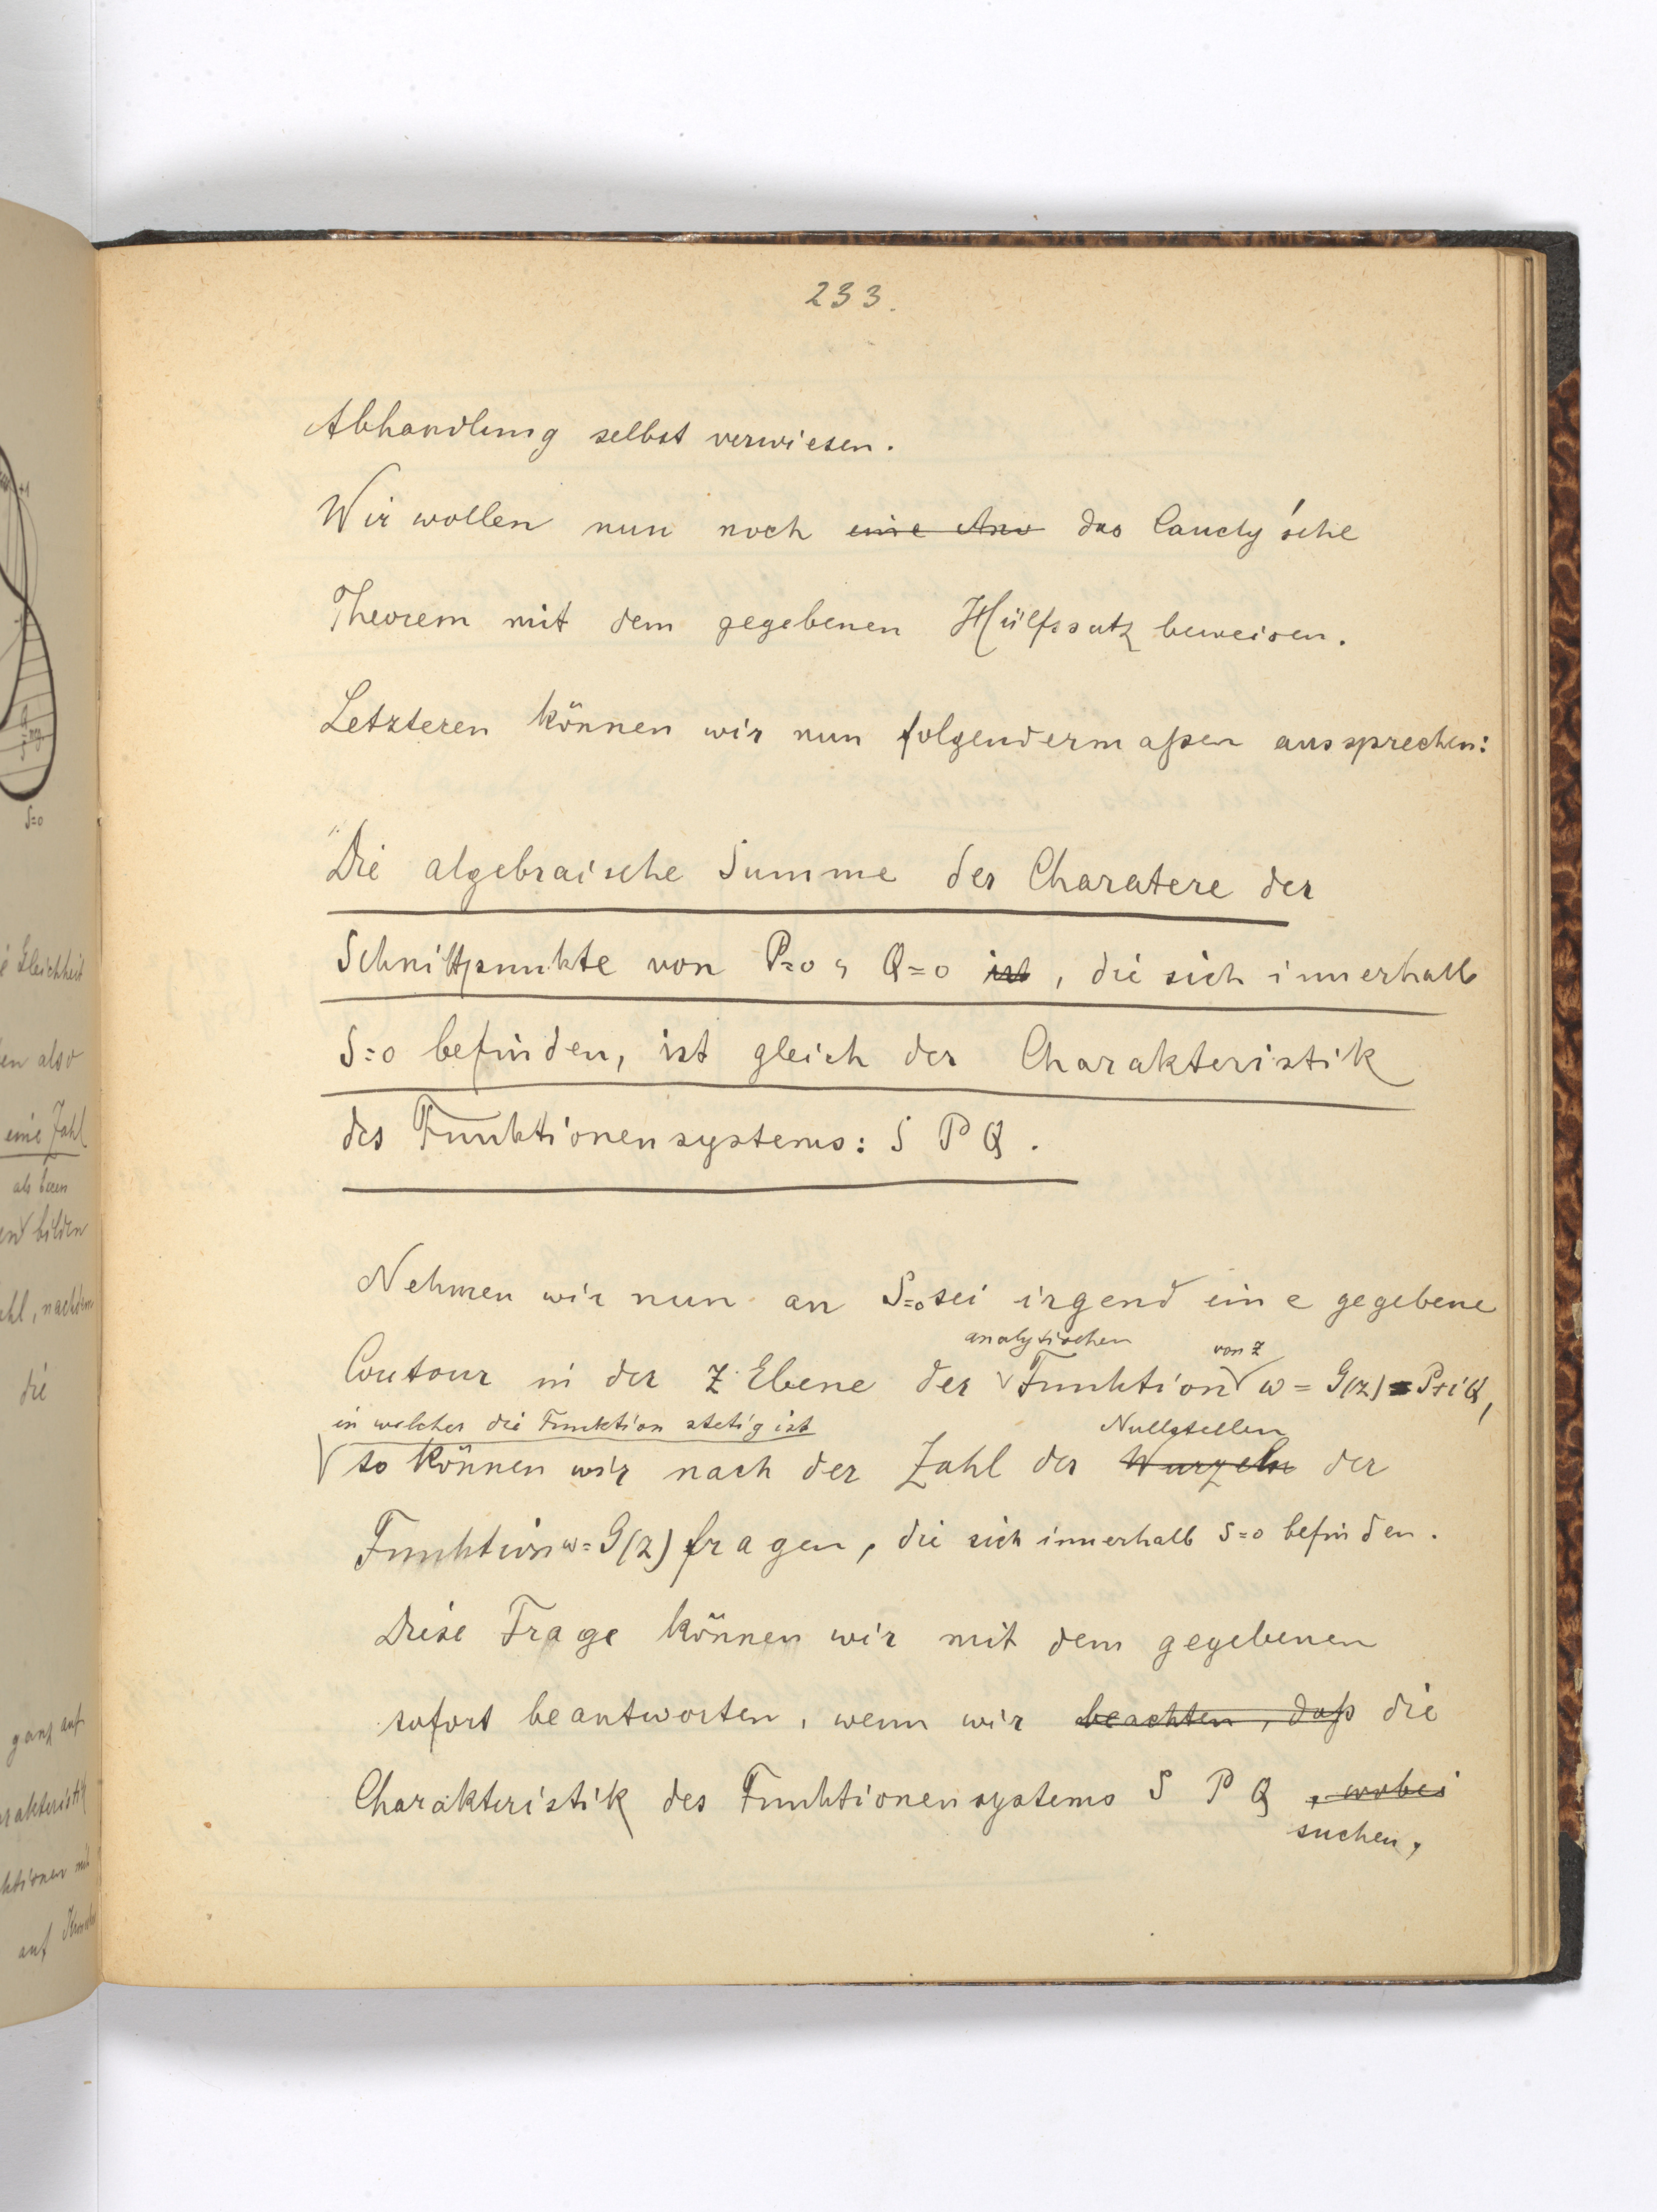 233.
Abhandlung selbst verwiesen.
Wir wollen nun noch eine Anw das Caucly'sche
Theorem mit dem gegebenen Hülfssatz beweisen.
Letzteren können wir nun folgendermaßen aussprechen:
"Die algebraische Summe der Charatere der
Schnittpunkte von P=0, Q=0 ist, die sich innerhalb
S=0 befinden, ist gleich der Charakteristik
des Funktionensystems: S P Q.
Nehmen wir nun an S=0 sei irgend eine gegebene
analytischen von z
Contour in der z Ebene der Funktion w = G(z) = P+iQ,
in welcher die Funktion stetig ist Nullstellen
so können wir nach der Zahl der Wurzeln der
Funktion w=G(z) fragen, die sich innerhalb S=0 befinden.
Diese Frage können wir mit dem gegebenen
sofort beantworten, wenn wir beachten, daß die
Charakteristik des Funktionensystems S P Q , wobei
suchen,
S=0
Gleichheit
en also
eine Zahl
als deren
bilden
hl, nachdem
die
ganz auf
rakteristik
ktionen mit
auf